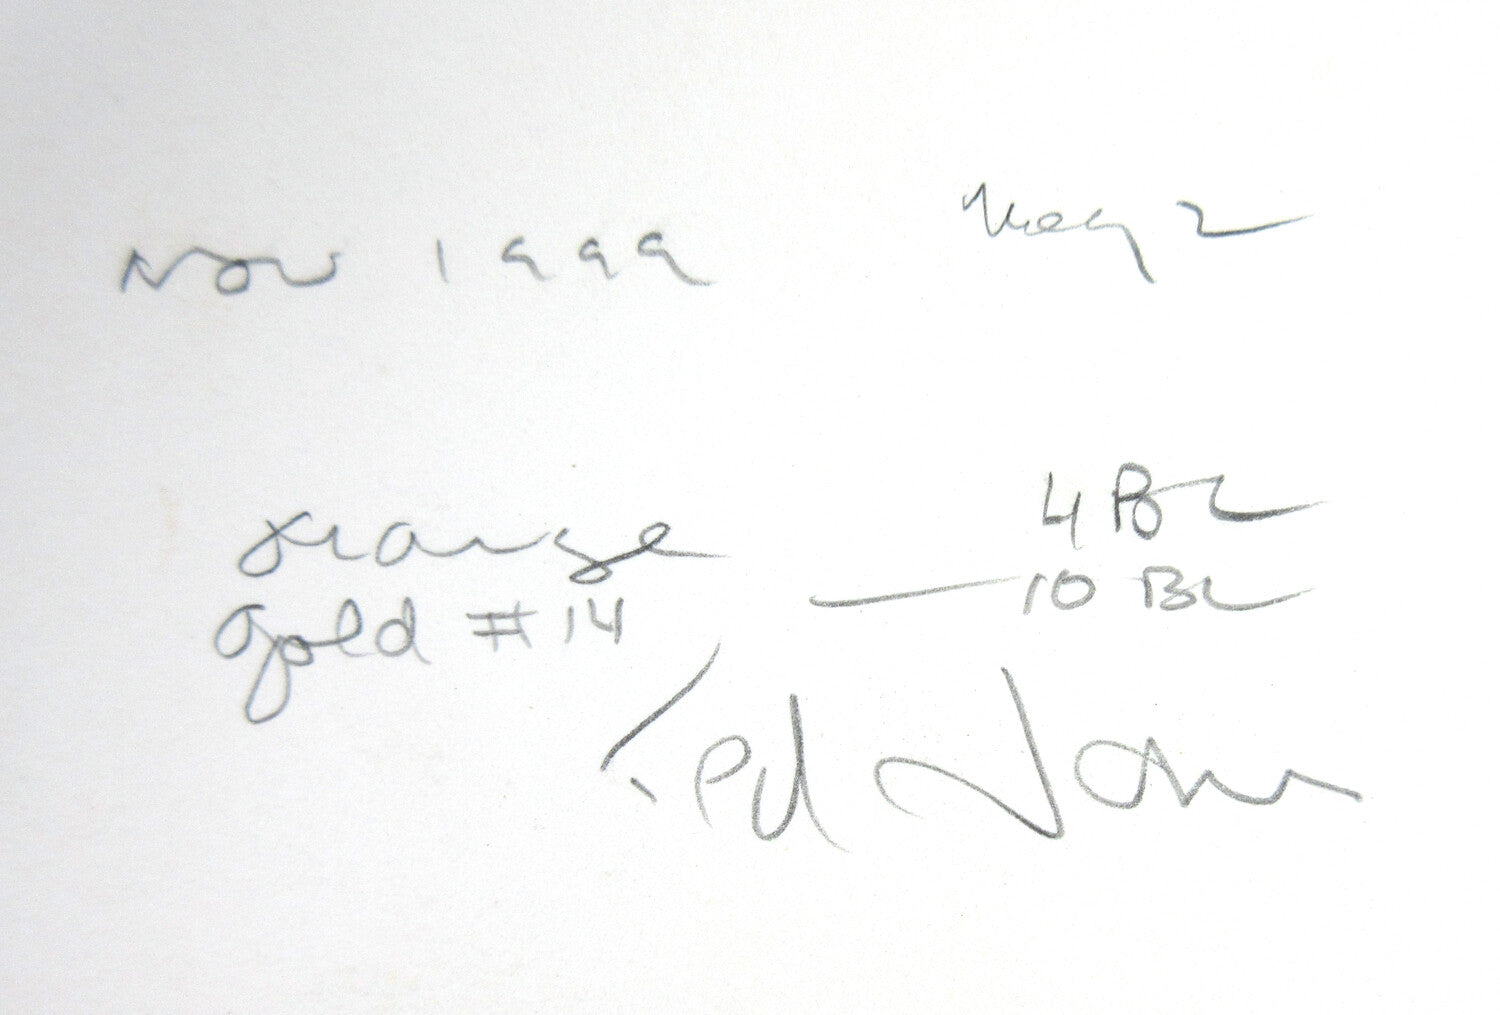 Nov 1999 May 2
orange 4 BL
Gold #14 — 10 BL
Ted